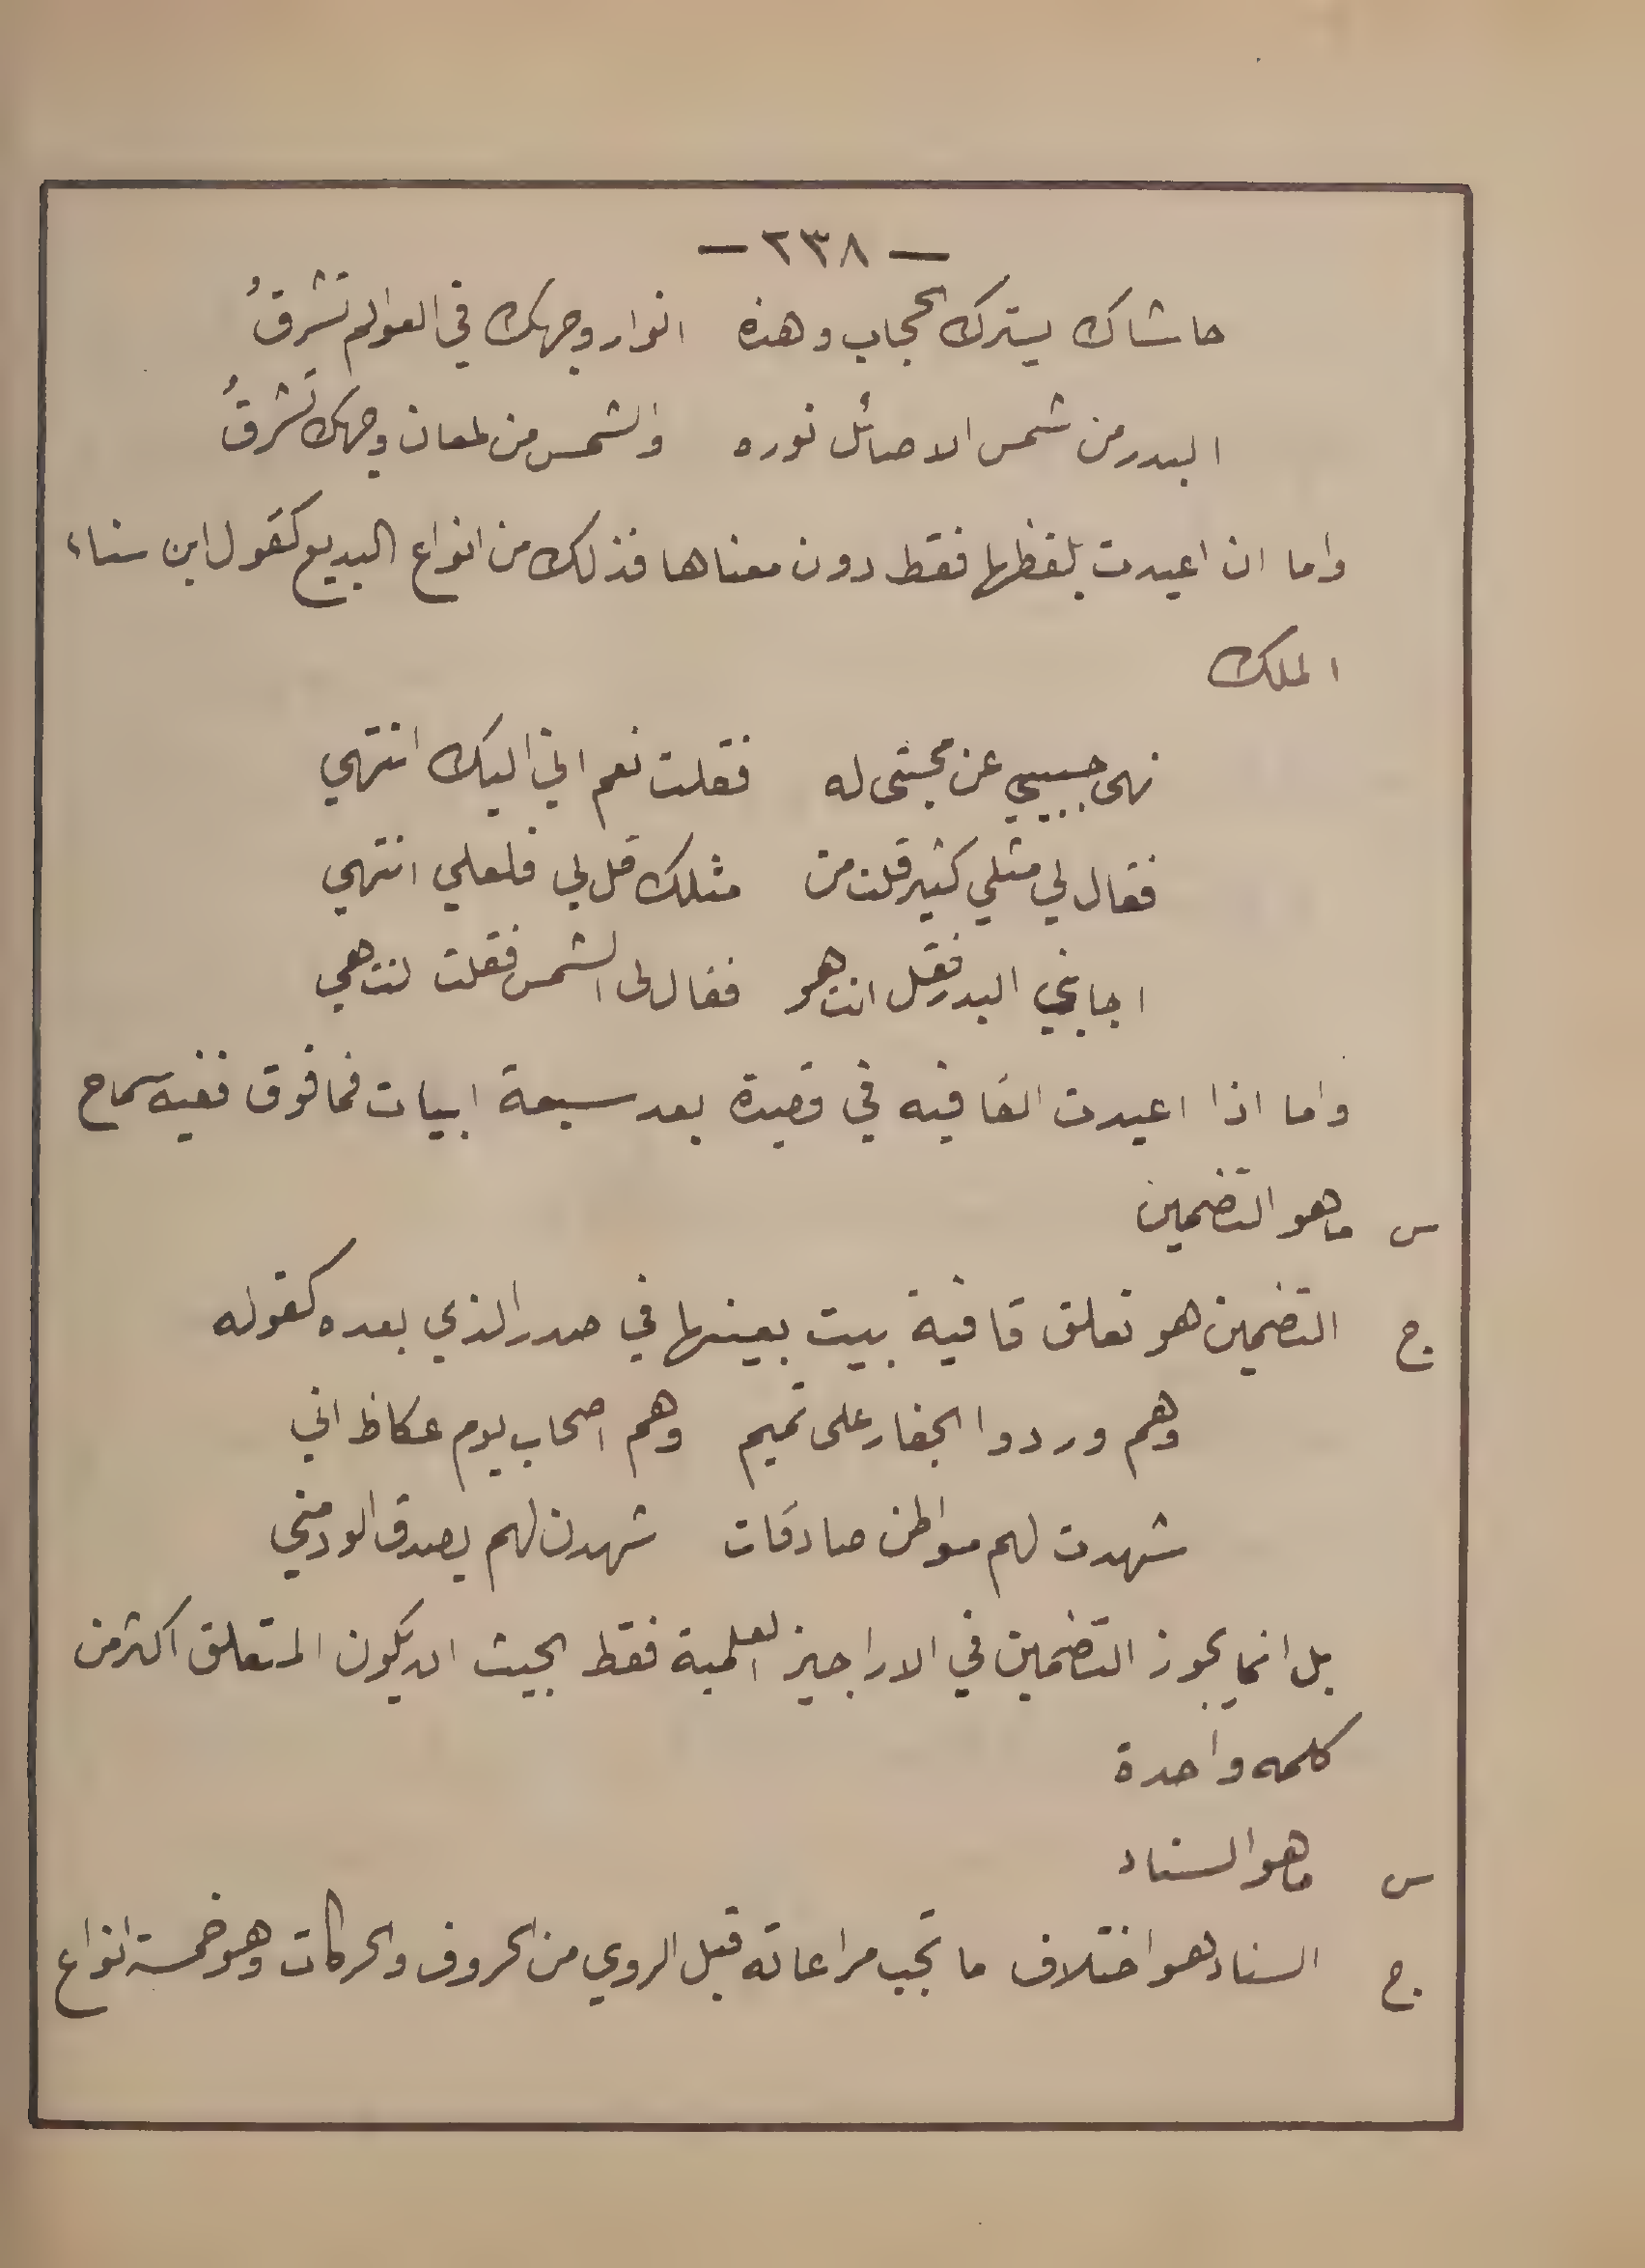 — ٢٣٨ —
حاشاك يسترك الحجاب وهذه انوار وجهك في العوالم تَشرقُ
البدر من شمس الاصائل نوره والشمس من لمعان وجهك تَشرقُ
واما ان اعيدت بلفظها فقط دون معناها فذلك من انواع البديع كقول ابن سناء
الملك
نهى حبيبي عن محبتى له فقلت نعم اني اليك انتهي
فقال لي مثلي كثير قلت من مثلك قل لي فلعلي انتهي
اجابني البدر فقل انت هو فقال لى الشمس فقلت لنت هي
واما اذا اعيدت القافيه في قصيدة بعد سبعة ابيات فما فوق ففيه سماح
س ما هو التضمين
ج التضمين هو تعلق قافية بيت بعينها في صدر الذي بعده كقوله
وهم وردوا الجفار على تميم وهم اصحاب يوم عكاظ اني
شهدت لهم مواطن صادقات شهدن لهم بصدق الود مني
بل انما يجوز التضمين في الاراجيز العلمية فقط بحيث ان يكون المتعلق اكثر من
كلمه واحدة
س ما هو السناد
ج السناد هو اختلاف ما تجب مراعاته قبل الروي من الحروف والحركات وهو خمسة انواع